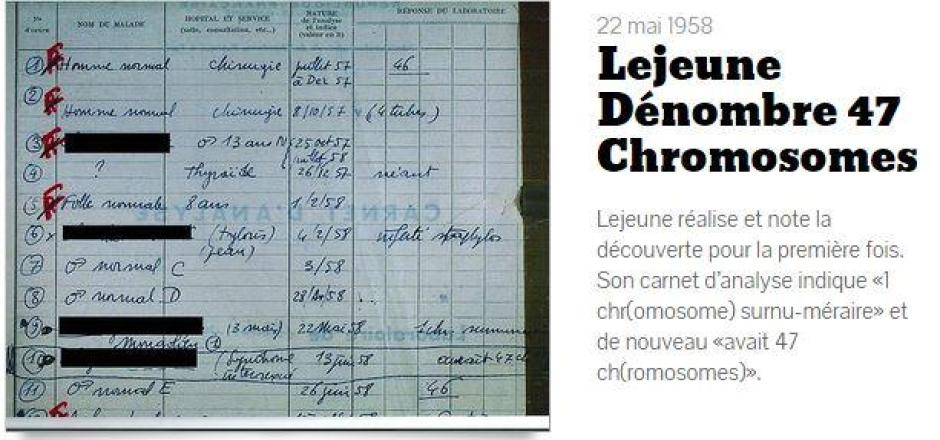 No
d'ordre
NOM DU MALADE
HOPITAL ET SERVICE
(salle, consultation, etc..)
NATURE
de l'analyse
et indice
(valeur en B)
RÉPONSE DU LABORATOIRE
1 Homme normal chirurgie juillet 57 46
à Dec 57
2
Homme normal chirurgie 8/10/57 (4 tubes)
3 ♂ 13 ans 25 oct 57
juillet 58
4 ? Thyroïde 26/12 57 néant
5 Fille normale 8 ans 1/2/58
6 4/2/58 infecté staphylos
7 ♂ normal C 3/58
8 ♂ normal D 28/ /58
CARNET D'ANALYSE
9 (3 mois) 22 Mai 58 1 chr
10 (Syndrome 13 juin 58 avait 47 ch
11 ♂ normal E 26 juin 58 46
22 mai 1958
Lejeune
Dénombre 47
Chromosomes
Lejeune réalise et note la
découverte pour la première fois.
Son carnet d'analyse indique «1
chr(omosome) surnu-méraire» et
de nouveau «avait 47
ch(romosomes)».